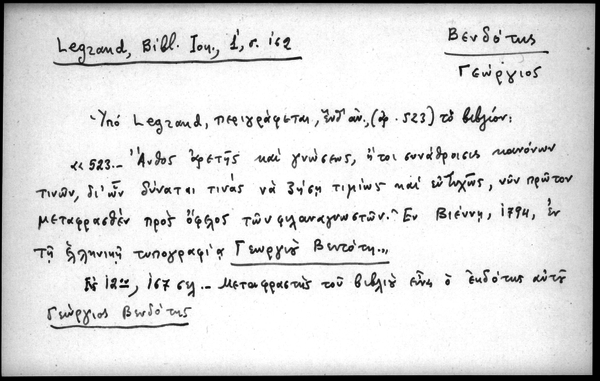 Legrand, Bibl. Ion., 1, σ. 162
Βενδότης
Γεώργιος
Ὑπό Legrand, περιγράφεται, (ἀρ. 523) τὸ βιβλίον:
«523.- Ἄνθος ἀρετῆς καὶ γνώσεως, ἤτοι συνάθροισις κανόνων
τινῶν, δι' ὧν δύναται τινάς νὰ ζήσῃ τιμίως καὶ εὐτυχῶς, νῦν πρῶτον
μεταφρασθὲν πρὸς ὄφελος τῶν φιλαναγνωστῶν. Ἐν Βιέννῃ, 1794, ἐν
τῇ ἑλληνικῇ τυπογραφίᾳ Γεωργίου Βεντότη.»
12ον, 167 σελ. - Μεταφραστὴς τοῦ βιβλίου εἶναι ὁ ἐκδότης αὐτοῦ
Γεώργιος Βενδότης